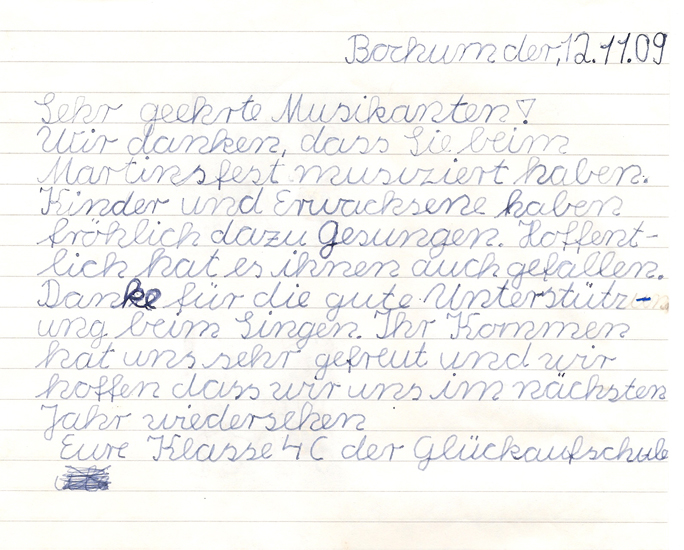 Bochum der, 12.11.09
Sehr geehrte Musikanten!
Wir danken, dass Sie beim
Martinsfest musiziert haben.
Kinder und Erwachsene haben
fröhlich dazu gesungen. Hoffent-
lich hat es ihnen auch gefallen.
Danke für die gute Unterstütz-
ung beim Singen. Ihr Kommen
hat uns sehr gefreut und wir
hoffen dass wir uns im nächsten
Jahr wiedersehen
Eure Klasse 4C der Glückaufschule